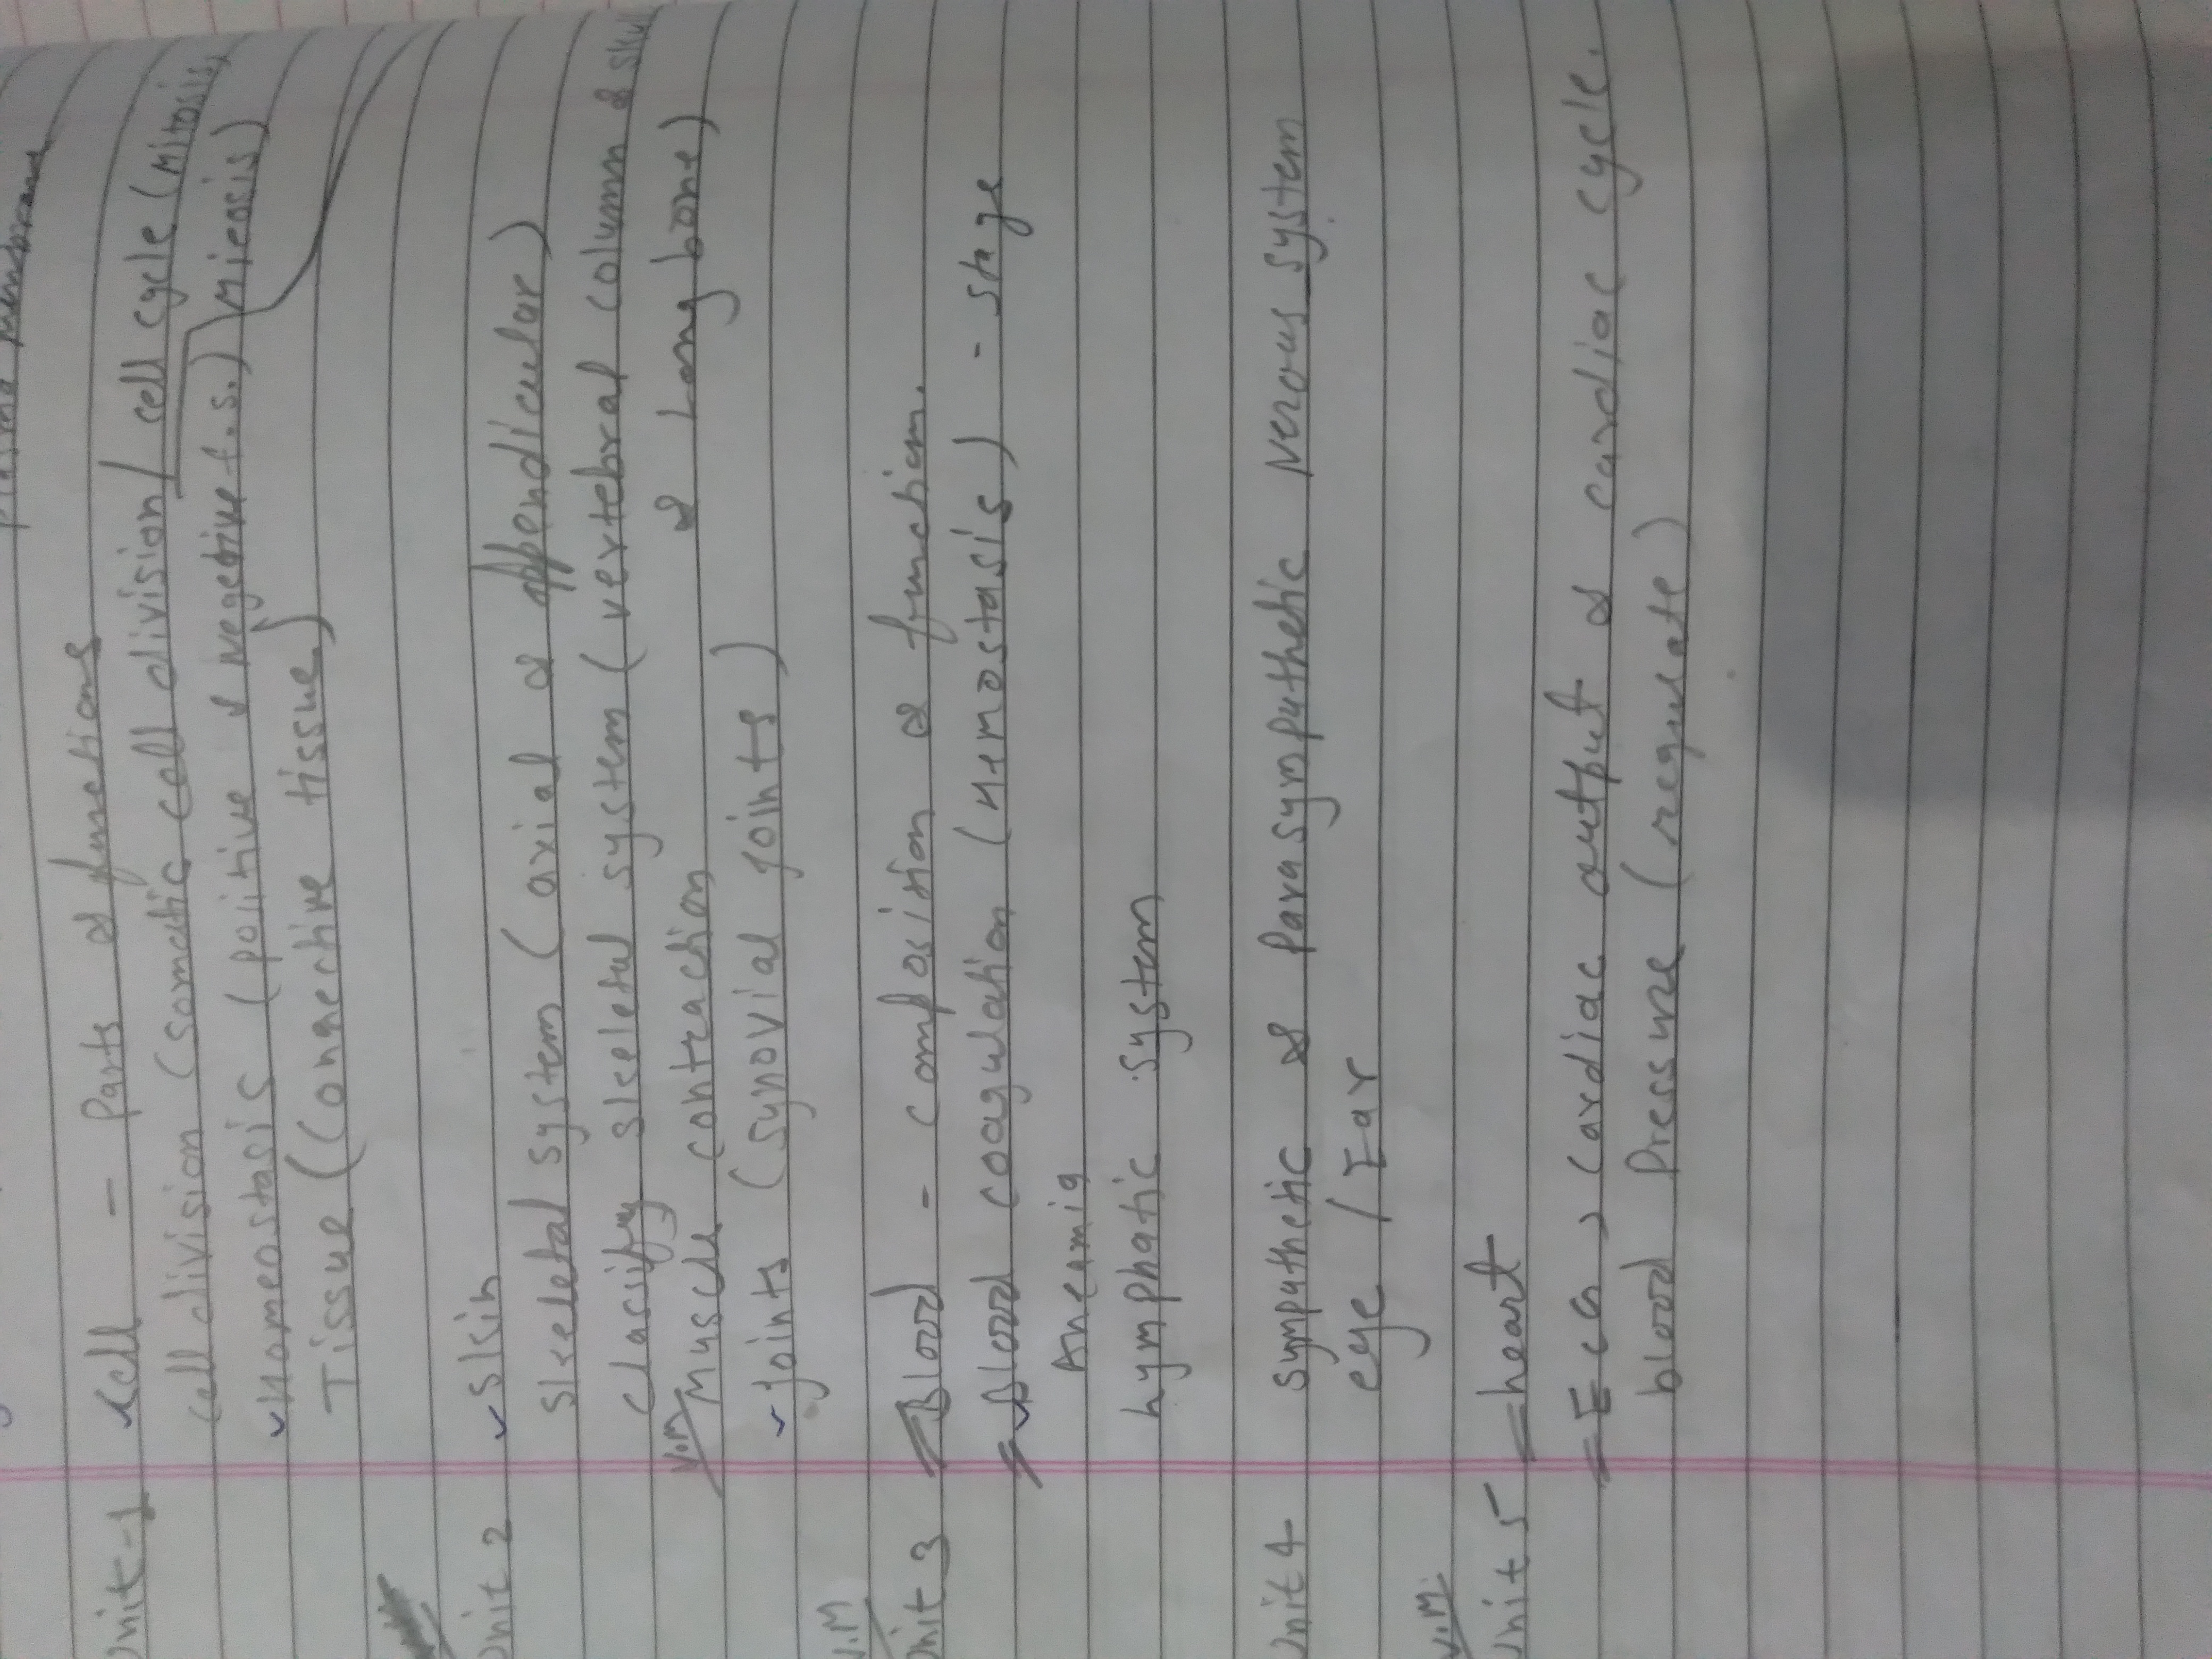 Plasma membrane
Unit-1 cell - Parts & functions
cell division (somatic cell division / cell cycle (mitosis,
Homeostasis (poitive & Negetive f.s.) miosis)
Tissue (Connective tissue)
Unit 2 skin
skeletal system (axial & appendicular)
Classify skeletal system (vertebral column &
V.M Muscle contraction & Long bone)
Joints (synovial joints)
V.M
Unit 3 Blood - composition & function.
Blood coagulation (Hemostasis) - stage
Aneamia
lymphatic system
Unit 4 sympathetic & Parasympathetic Nervous system
eye / Ear
V.M.
Unit 5 - heart
= ECG, Cardiac output & cardiac cycle.
blood Pressure (regulate)